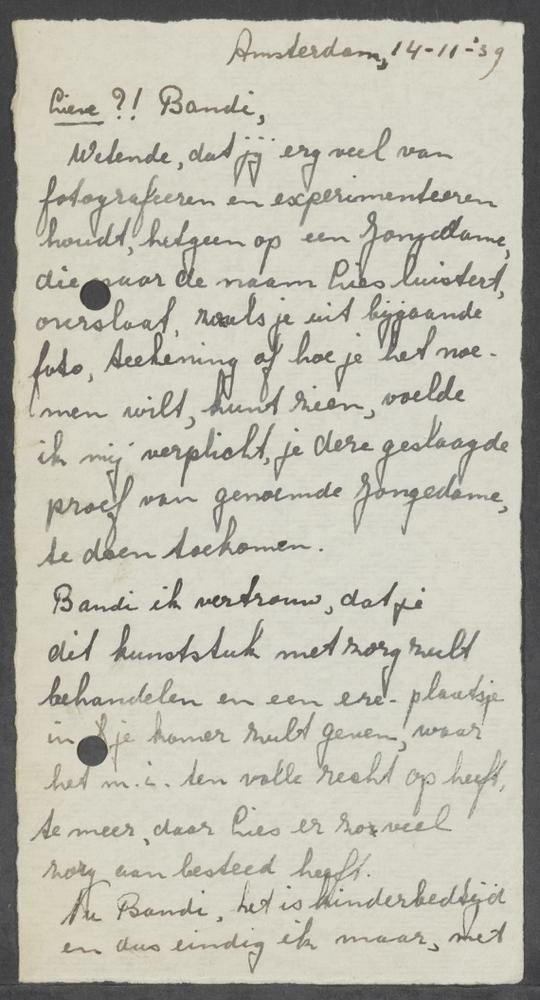 Amsterdam, 14-11-'39
Lieve ?! Bandi,
Wetende, dat jij erg veel van
fotografieren en experimenteeren
houdt, hetgeen op een Jongedame,
die naar de naam Lies luistert,
overslaat, zoals je uit bijgaande
foto, teekening of hoe je het noe-
men wilt, kunt zien, voelde
ik mij verplicht, je deze geslaagde
proef van genoemde Jongedame,
te doen toekomen.
Bandi ik vertrouw, dat je
dit kunststuk met zorg zult
behandelen en een ere-plaatsje
in je kamer zult geven, waar
het m.i. ten volle recht op heeft,
te meer, daar Lies er zoveel
zorg aan besteed heeft.
Nu Bandi, het is kinderbedtijd
en dus eindig ik maar, met